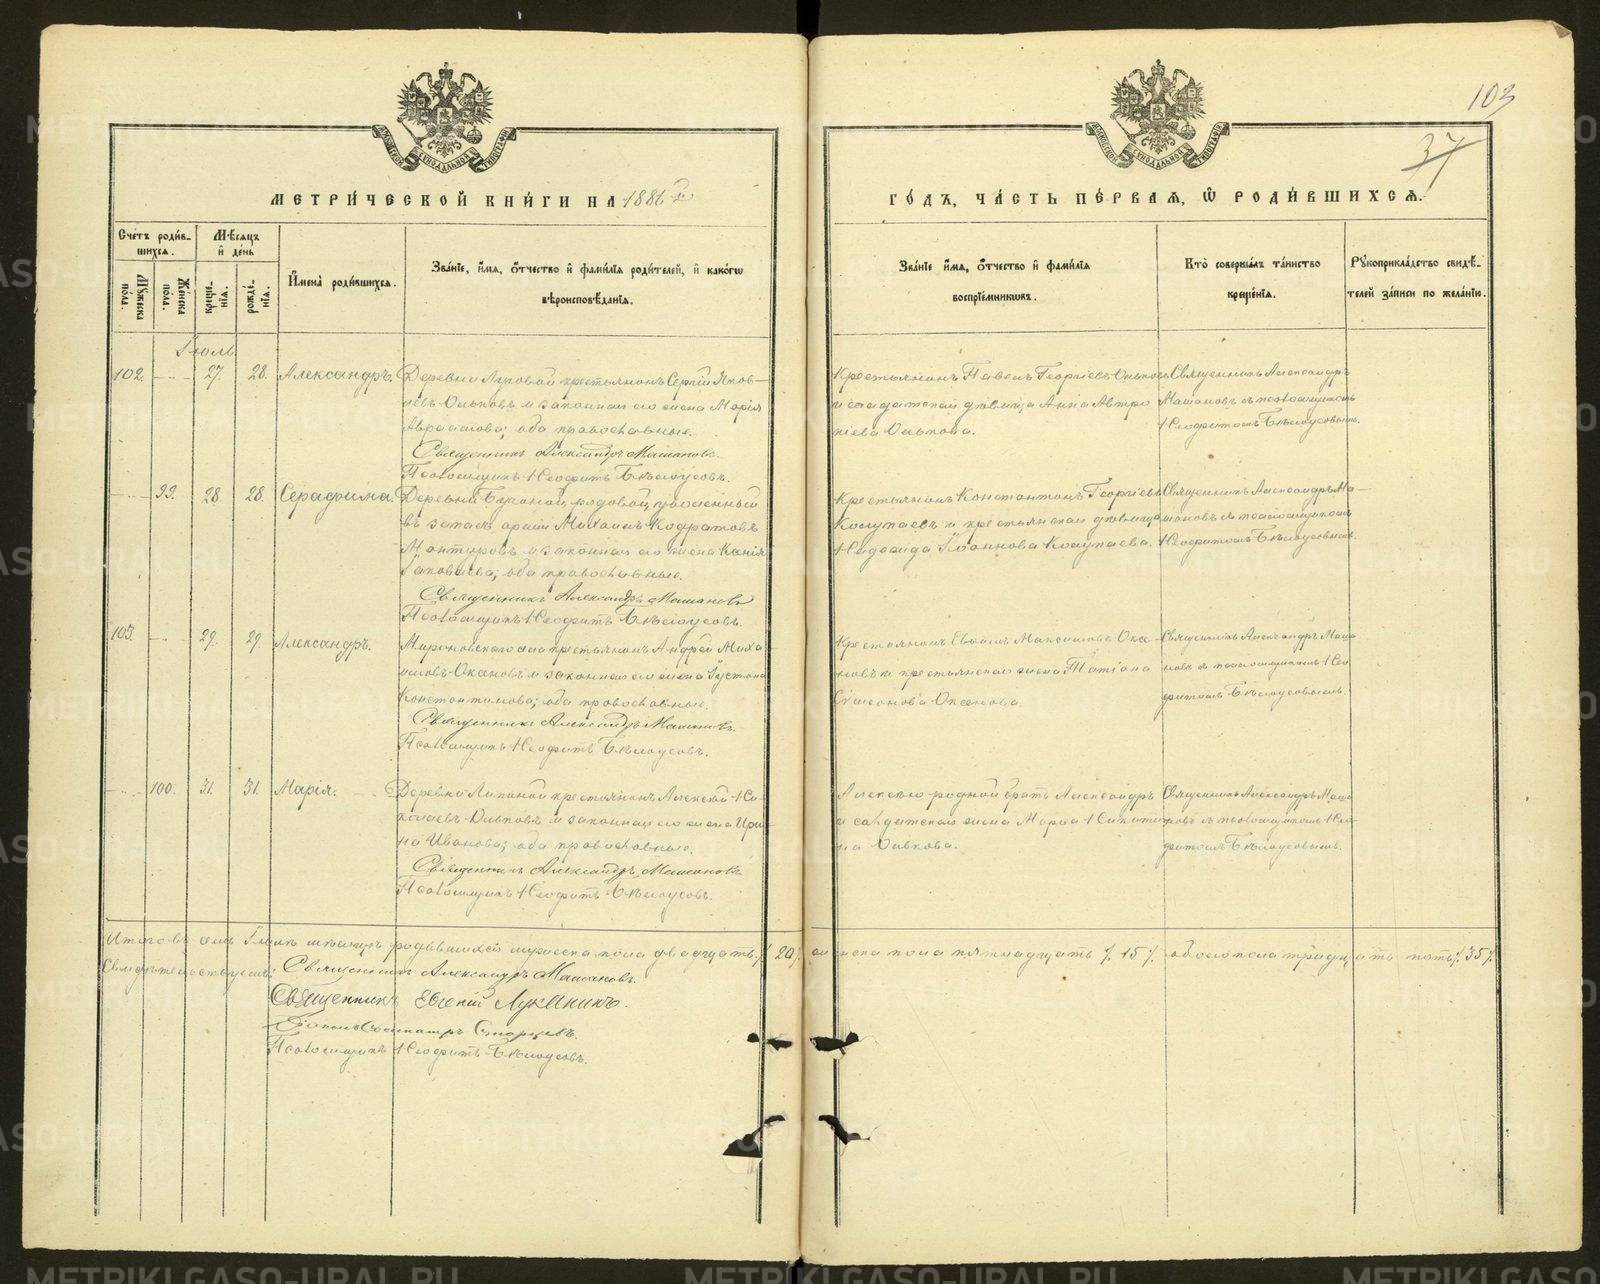 103
37
МЕТРИ́ЧЕСКОЙ КНИ́ГИ НА 1886 й
ГО́ДЪ, ЧА́СТЬ ПЕ́РВАЯ, Ѿ РОДИ́ВШИХСЯ.
Сче́тъ роди́в-
шихся.
Му́жеска пола.
Же́нска пола.
Мѣ́сяцъ
и҆ де́нь
креще́-
нїя.
рожде́-
нїя.
И҆мена̀ роди́вшихся.
Зва́нїе, и҆́мя, ѻ҆́тчество и҆ фами́лїя роди́телей, и҆ како́гѡ
вѣроисповѣ́данїя.
Зва́нїе и҆́мя, ѻ҆́тчество и҆ фами́лїя
воспрїе́мникѡвъ.
Кто̀ соверша́лъ та́инство
креще́нїя.
Рꙋкоприкла́дство свидѣ́-
телей за́писи по жела́нїю.
Іюль
102. 27. 28. Александръ. Деревни крестьянинъ Сергій Яков-
левъ Ольковъ и законная его жена Марія
; оба православные.
Священникъ Александръ Машановъ.
Псаломщикъ Неофитъ Бѣлоусовъ.
Крестьянинъ Павелъ Георгіевъ Ольковъ
и солдатская дѣвица Анна
Олькова.
Священникъ Александръ
Машановъ съ псаломщикомъ
Неофитомъ Бѣлоусовымъ.
99. 28. 28. Серафима. Деревни уволенный
въ запасъ арміи Михаилъ Кодратовъ
Мантуровъ и законная его жена Ксенія
Іаковлева; оба православные.
Священникъ Александръ Машановъ
Псаломщикъ Неофитъ Бѣлоусовъ.
Крестьянинъ Константинъ Георгіевъ
и крестьянская дѣвица
Іоаннова
Священникъ Александръ Ма-
шановъ съ псаломщикомъ
Неофитомъ Бѣлоусовымъ.
103. 29. 29. Александръ. Мироновскаго села крестьянинъ Андрей Миха-
иловъ Оксеновъ и законная его жена Іустина
Константинова; оба православные.
Священникъ Александръ Машановъ.
Псаломщикъ Неофитъ Бѣлоусовъ.
Крестьянинъ Максимовъ Оксе-
новъ и крестьянская жена Татіана
Симеонова Оксенова.
Священникъ Александръ Маша-
новъ съ псаломщикомъ Нео-
фитомъ Бѣлоусовымъ.
100. 31. 31. Марія. Деревни Липиной крестьянинъ Алексѣй Ни-
колаевъ Ольковъ и законная его жена Ири-
на Иванова; оба православные.
Священникъ Александръ Машановъ
Псаломщикъ Неофитъ Бѣлоусовъ.
родной братъ Александръ
и солдатская жена Марѳа Никити-
на
Священникъ Александръ Маша-
новъ съ псаломщикомъ Нео-
фитомъ Бѣлоусовымъ.
Итого въ Іюлѣ мѣсяцѣ родившихся мужеска пола двадцать /20/ женска пола пятнадцать /15/ обоего пола тридцать пять /35/
Свидѣтельствуемъ: Священникъ Александръ Машановъ.
Священникъ Евгеній Луканинъ.
Псаломщикъ Неофитъ Бѣлоусовъ.